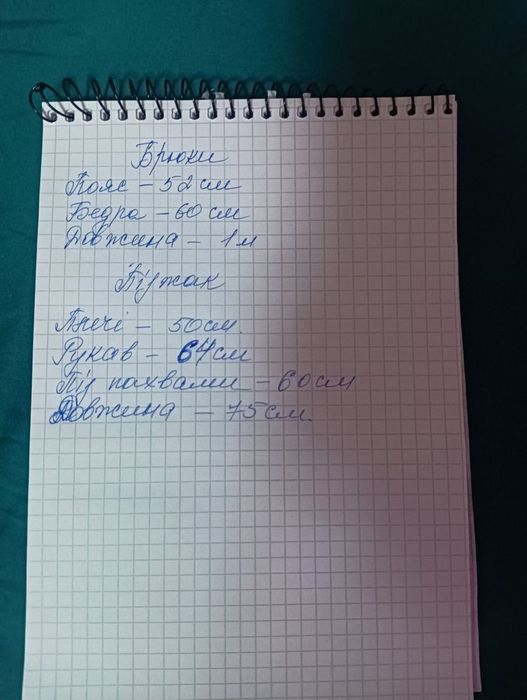 Брюки
Пояс – 52 см
Бедра – 60 см
Довжина – 1 м
Піджак
Плечі – 50 см.
Рукав – 64 см
Під пахвами – 60 см
Довжина – 75 см.